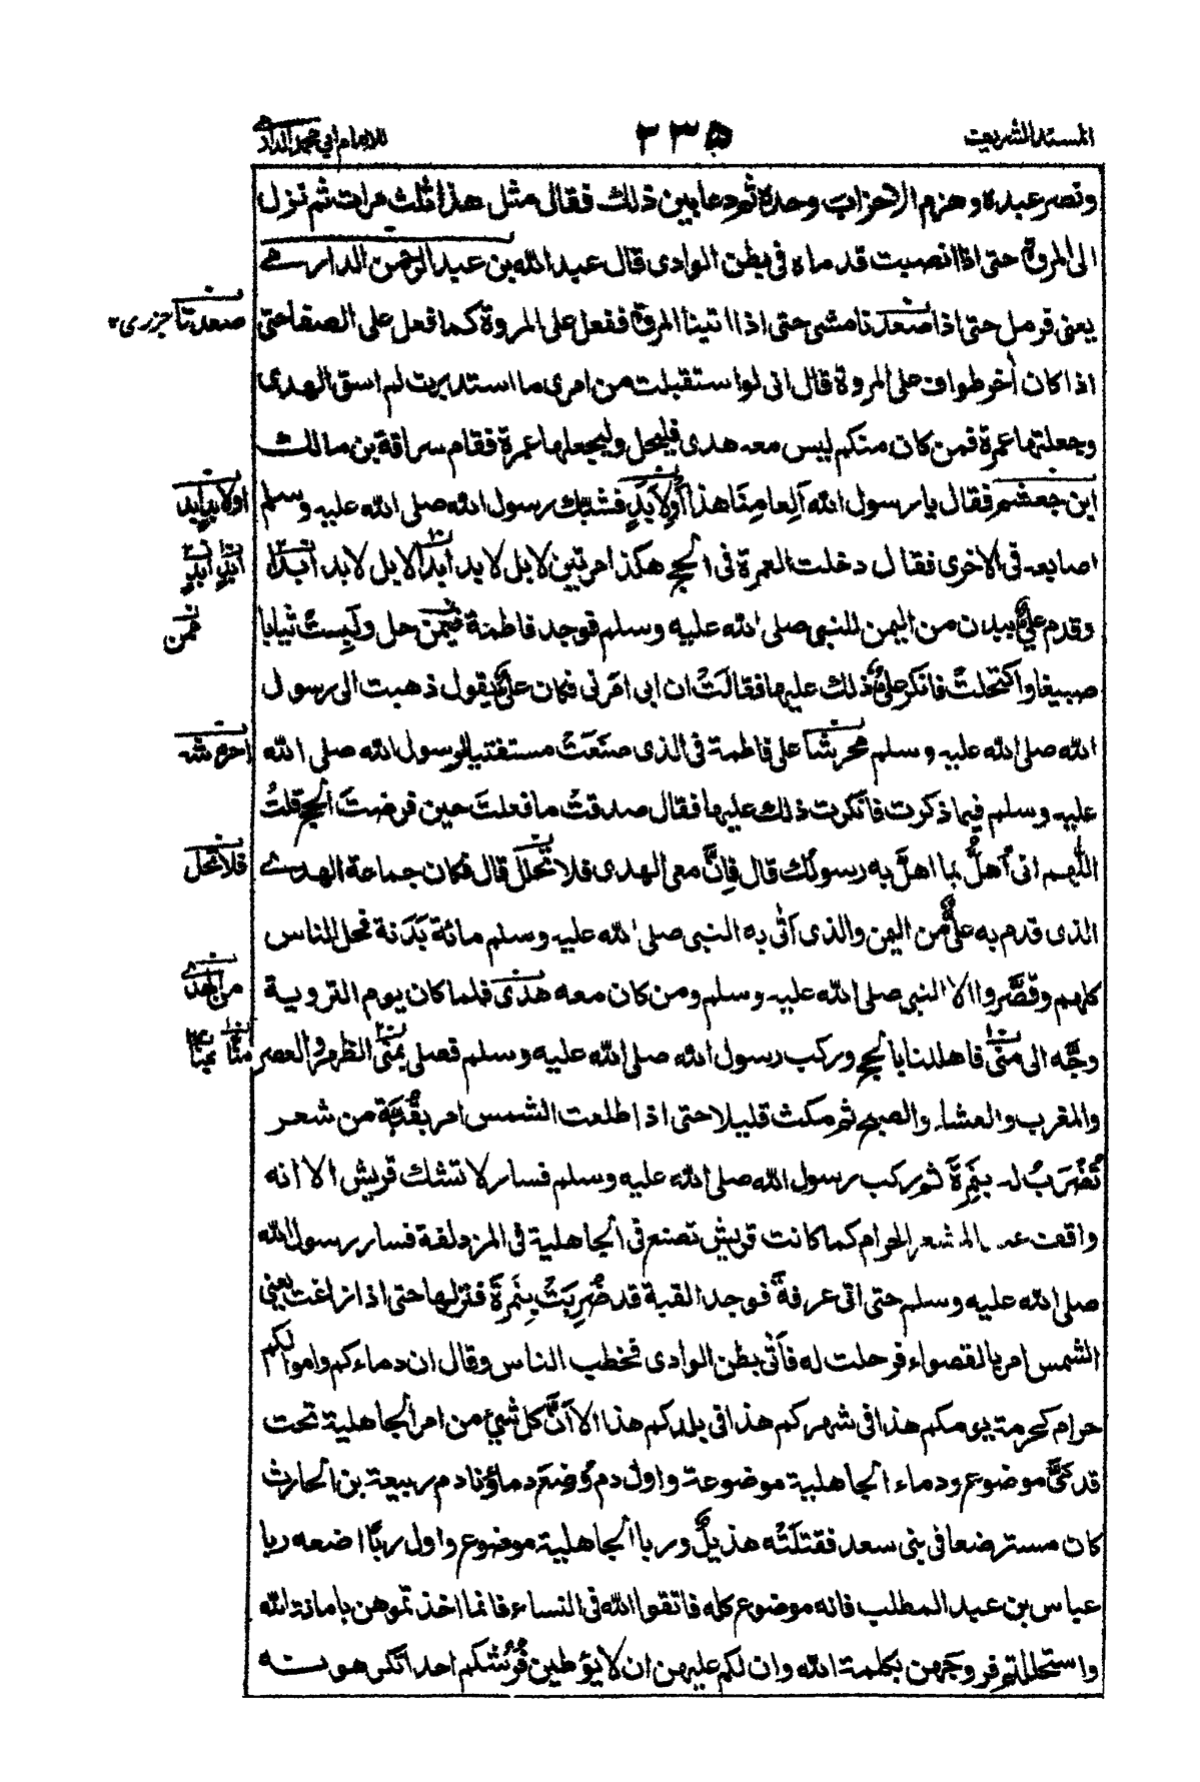 المسند الشريف
٢٣٥
للامام ابي محمد الدارمي
ونصر عبده وهزم الاحزاب وحده ثم دعا بين ذلك فقال مثل هذا ثلث مرات ثم نزل
الى المروة حتى اذا انصبت قدماه في بطن الوادى قال عبد الله بن عبد الرحمن الدارمي
يعنى فرمل حتى اذا صعدنا مشى حتى اذا اتينا المروة ففعل على المروة كما فعل على الصفا حتى
صعدتا جزرى
اذا كان اٰخر طواف على المروة قال انى لو استقبلت من امرى ما استدبرت لم اسق الهدى
وجعلتها عمرة فمن كان منكم ليس معه هدى فليحل وليجعلها عمرة فقام سراقة بن مالك
ابن جعشم فقال يا رسول الله اَلِعامِنَا هذا اَوْلاَبَدٍ فشبك رسول الله صلى الله عليه وسلم
او لابدٍ ابد
اصابعه فى الاخرى فقال دخلت العمرة فى الحج هكذا مرتين لا بل لابد ابدا لا بل لابد ابدا
ابدٍ ابدٍ
وقدم علىٌّ ببدن من اليمن للنبى صلى الله عليه وسلم فوجد فاطمة فيمن حل ولَبِسَتْ ثيابا
ممن
صبيغا واكتحلتْ فانكر علىٌّ ذلك عليها فقالَتْ ان ابى امرنى فكان علىٌّ يقول ذهبت الى رسول
الله صلى الله عليه وسلم محرشا على فاطمة فى الذى صنَعَتْ مستفتيا لرسول الله صلى الله
احرشه
عليه وسلم فيما ذكرت فانكرت ذلك عليها فقال صدقتْ ما فعلتَ حين فرضتَ الحج قلتُ
اللّٰهم انى اُهلُّ بما اهلَّ به رسولك قال فاِنَّ معى الهدى فلا تحلل قال فكان جماعة الهدى
فلا تحل
الذى قدم به علىٌّ من اليمن والذى اَتٰى به النبى صلى الله عليه وسلم مائة بَدَنة فحل الناس
كلهم وقصَّروا الا النبى صلى الله عليه وسلم ومن كان معه هدى فلما كان يوم التروية
وجَّه الى منى فاهللنا بالحج وركب رسول الله صلى الله عليه وسلم فصلى بمنى الظهر والعصر
منًا بمنًا
والمغرب والعشاء والصبح ثم مكث قليلا حتى اذا طلعت الشمس امر بقُبَّة من شعر
تُضْرَبُ له بنَمِرَةَ ثم ركب رسول الله صلى الله عليه وسلم فسار لا تشك قريش الا انه
واقف عند المشعر الحرام كما كانت قريش تصنع فى الجاهلية فى المزدلفة فسار رسول الله
صلى الله عليه وسلم حتى اتى عرفةَ فوجد القبة قد ضُرِبَتْ بِنَمِرَةَ فنزلها حتى اذا زاغت يعنى
الشمس امر بالقصواء فرحلت له فاَتٰى بطن الوادى فخطب الناس وقال ان دماءكم واموالكم
حرام كحرمة يومكم هذا فى شهركم هذا فى بلدكم هذا الا اَنَّ كل شئٍ من امر الجاهلية تحت
قدمَىَّ موضوع ودماء الجاهلية موضوعة واول دمٍ وُضِعَ دماؤنا دم ربيعة بن الحارث
كان مسترضعا فى بنى سعد فقتلَتْه هذيلٌ وربا الجاهلية موضوع واول ربًا اضعه ربا
عباس بن عبد المطلب فانه موضوع كله فاتقوا الله فى النساء فانما اخذتموهن بامانة الله
واستحللتم فروجهن بكلمة الله وان لكم عليهن ان لا يُوْطِئن فُرُشكم احدا تكرهونه